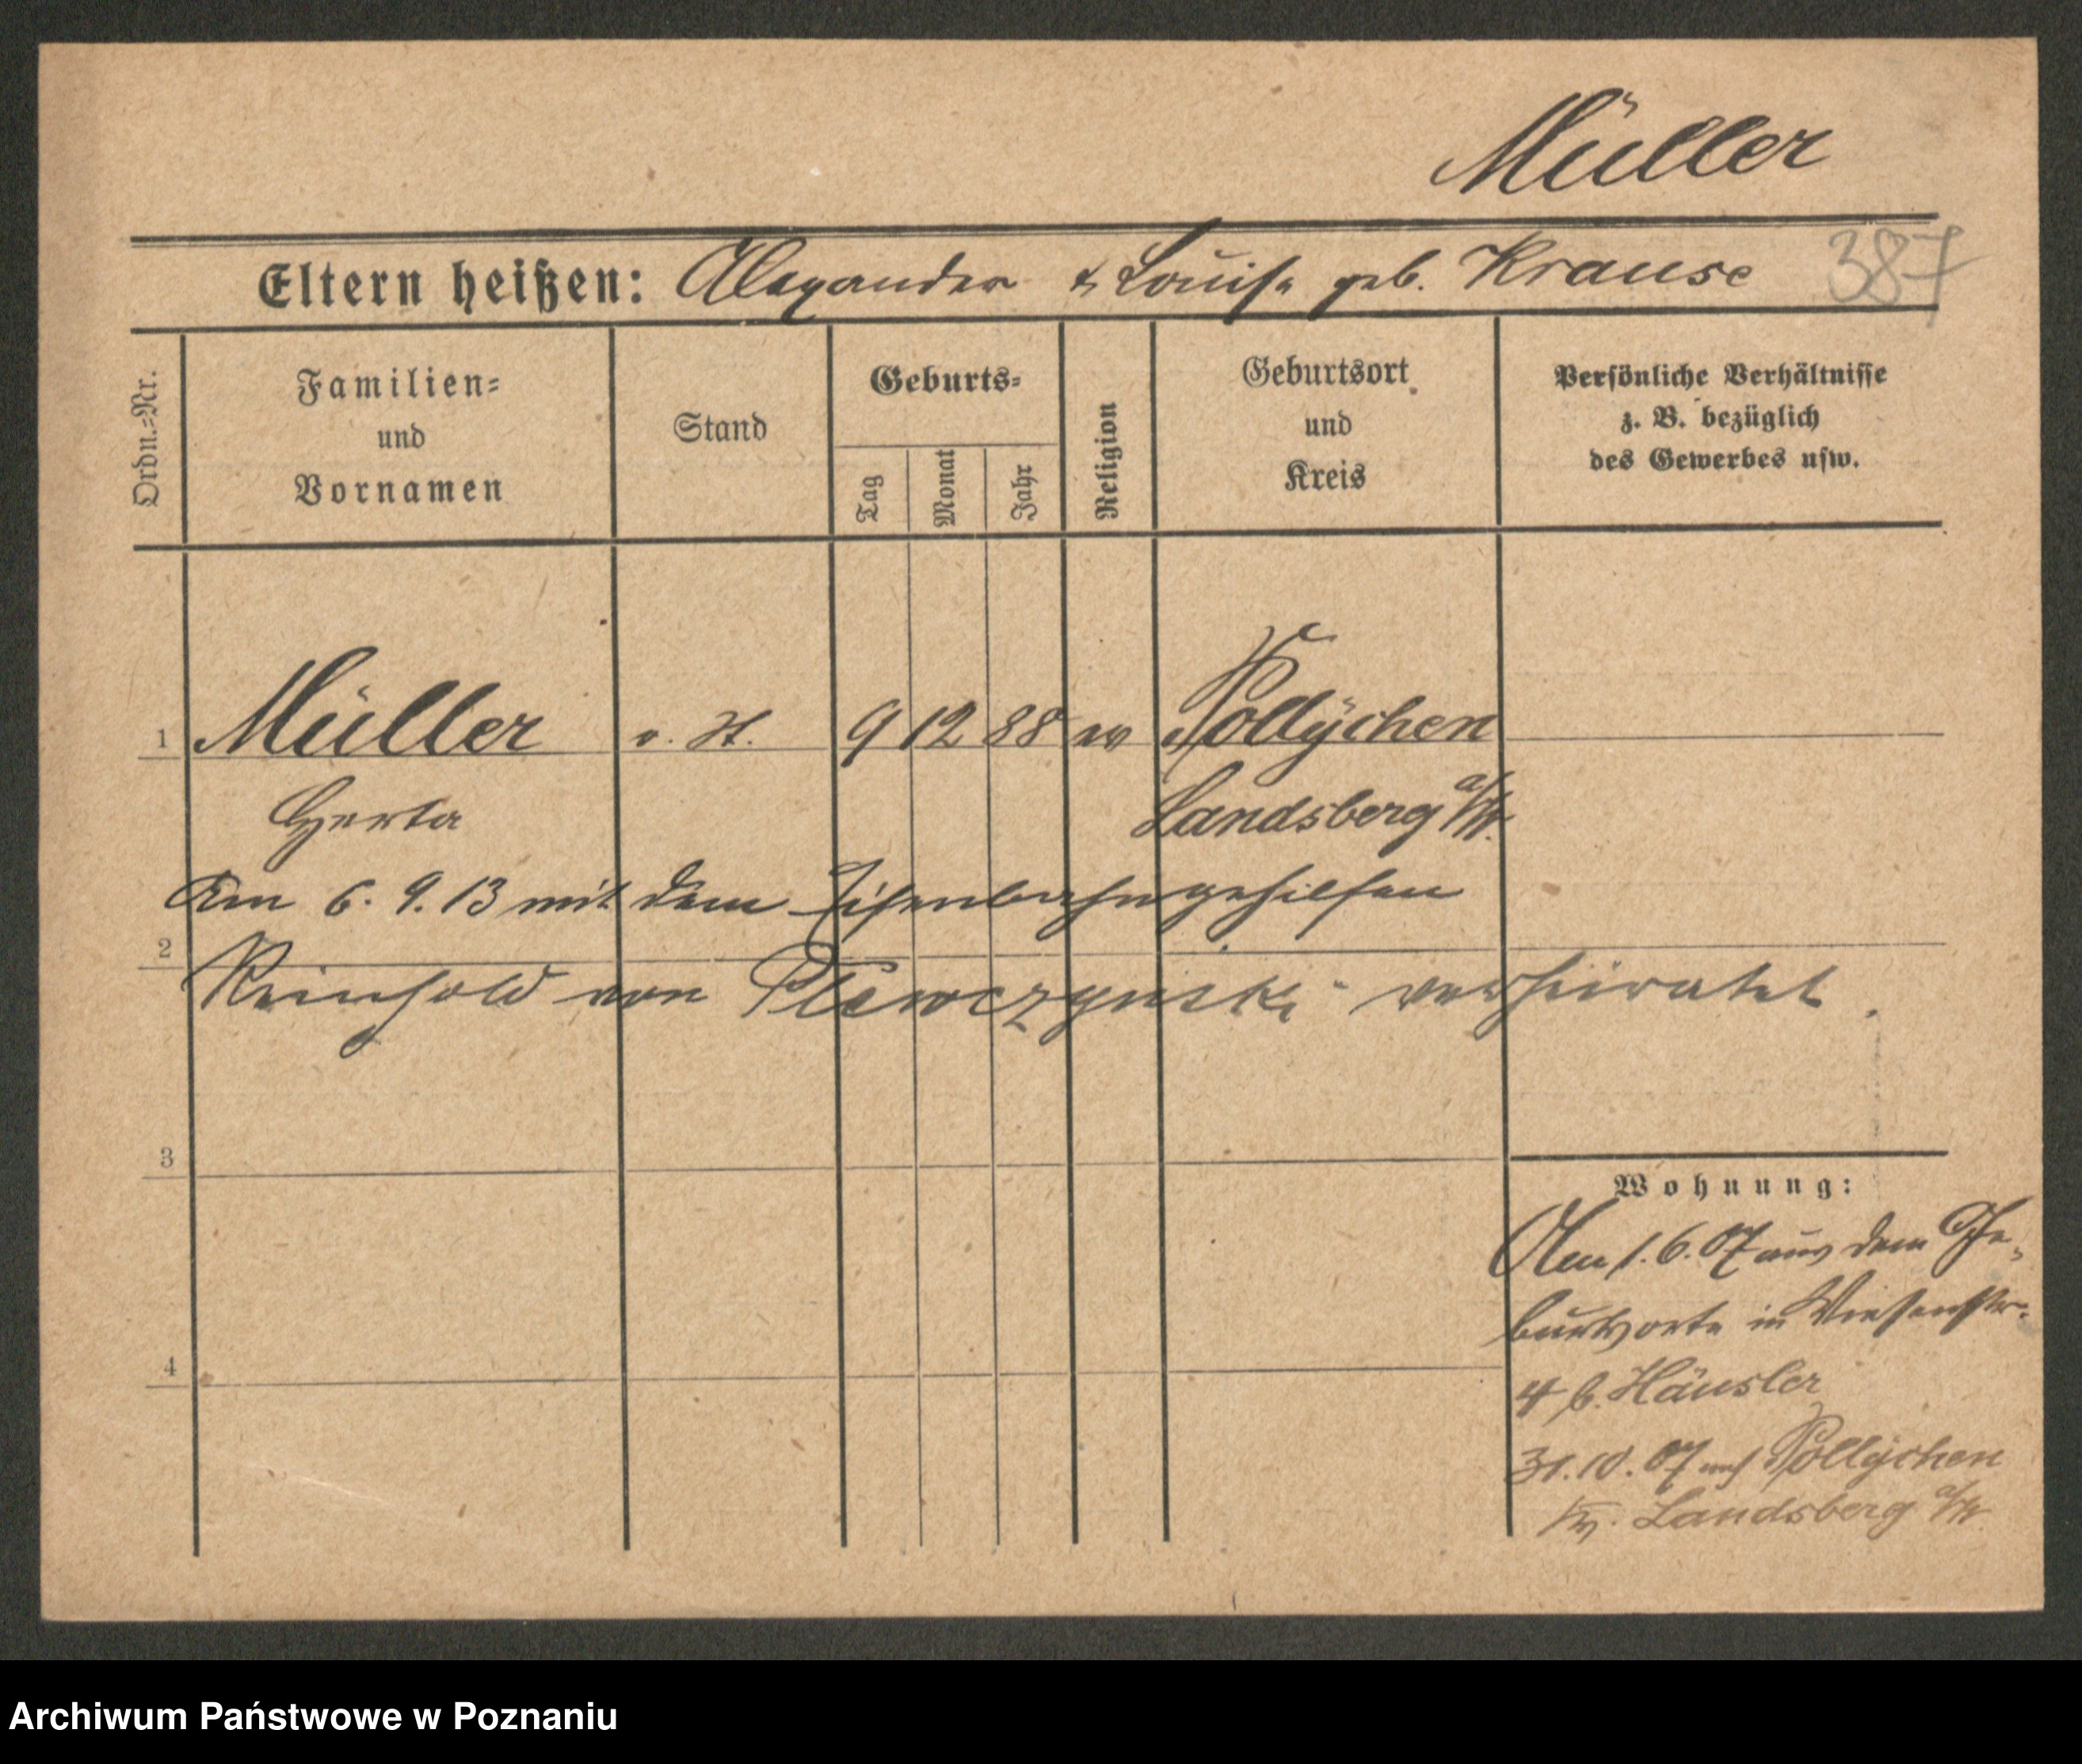 Müller
Eltern heißen: Alexander & Louise geb. Krause 387
Ordn.-Nr.
Familien-
und
Vornamen
Stand
Geburts-
Tag
Monat
Jahr
Religion
Geburtsort
und
Kreis
Persönliche Verhältnisse
z. B. bezüglich
des Gewerbes usw.
1 Müller o. St. 9 12 88 ev Pollychen
Herta Landsberg a/W.
Am 6. 9. 13 mit dem Eisenbahngehilfen
2
Reinhold von Plewczynski verheiratet.
3
Wohnung:
Am 1. 6. 07 aus dem Ge-
burtsorte in Wiesenstr.
4 b. Häusler
4
31. 10. 07 nach Pollychen
Kr. Landsberg a/W.
Archiwum Państwowe w Poznaniu